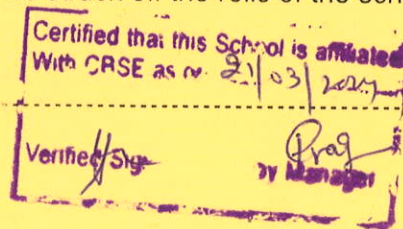 on the rolls of the
Certified that this School is affiliated
With CBSE as 21/03/2024
Verified Sign
Manager